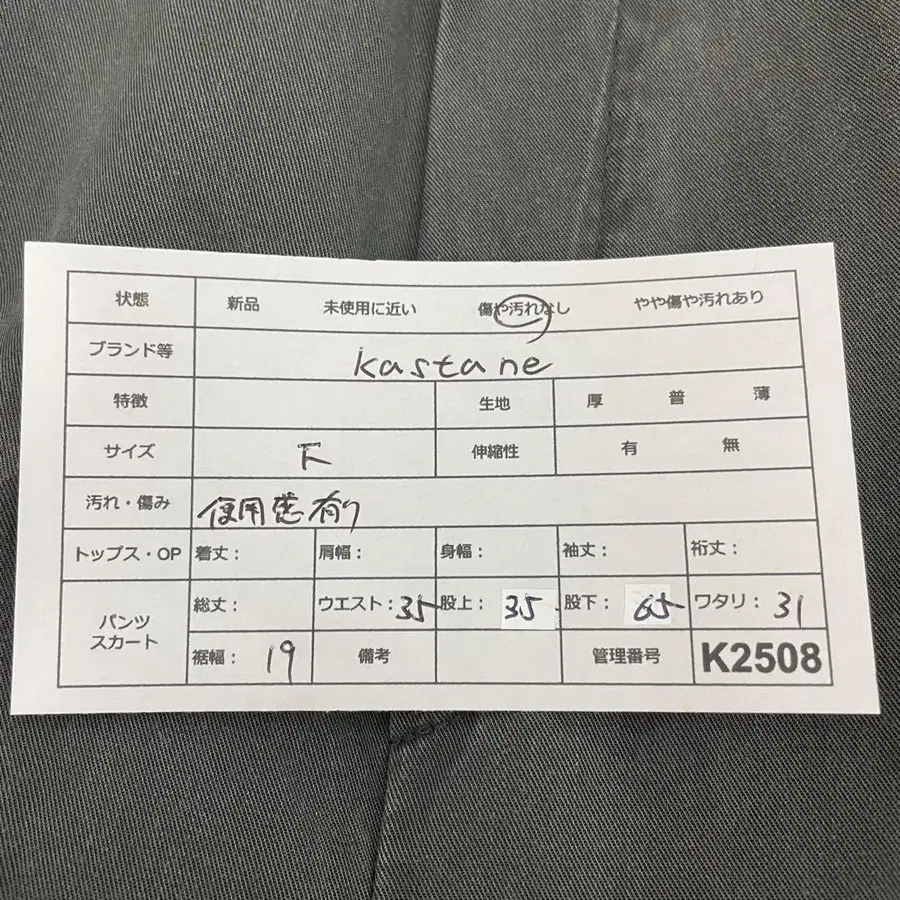 状態 新品 未使用に近い 傷や汚れなし やや傷や汚れあり
ブランド等 kastane
特徴 生地 厚 普 薄
サイズ F 伸縮性 有 無
汚れ・傷み 使用感有り
トップス・OP 着丈: 肩幅: 身幅: 袖丈: 裄丈:
パンツ スカート 総丈: ウエスト:35 股上:35 股下:65 ワタリ:31
裾幅:19 備考 管理番号 K2508